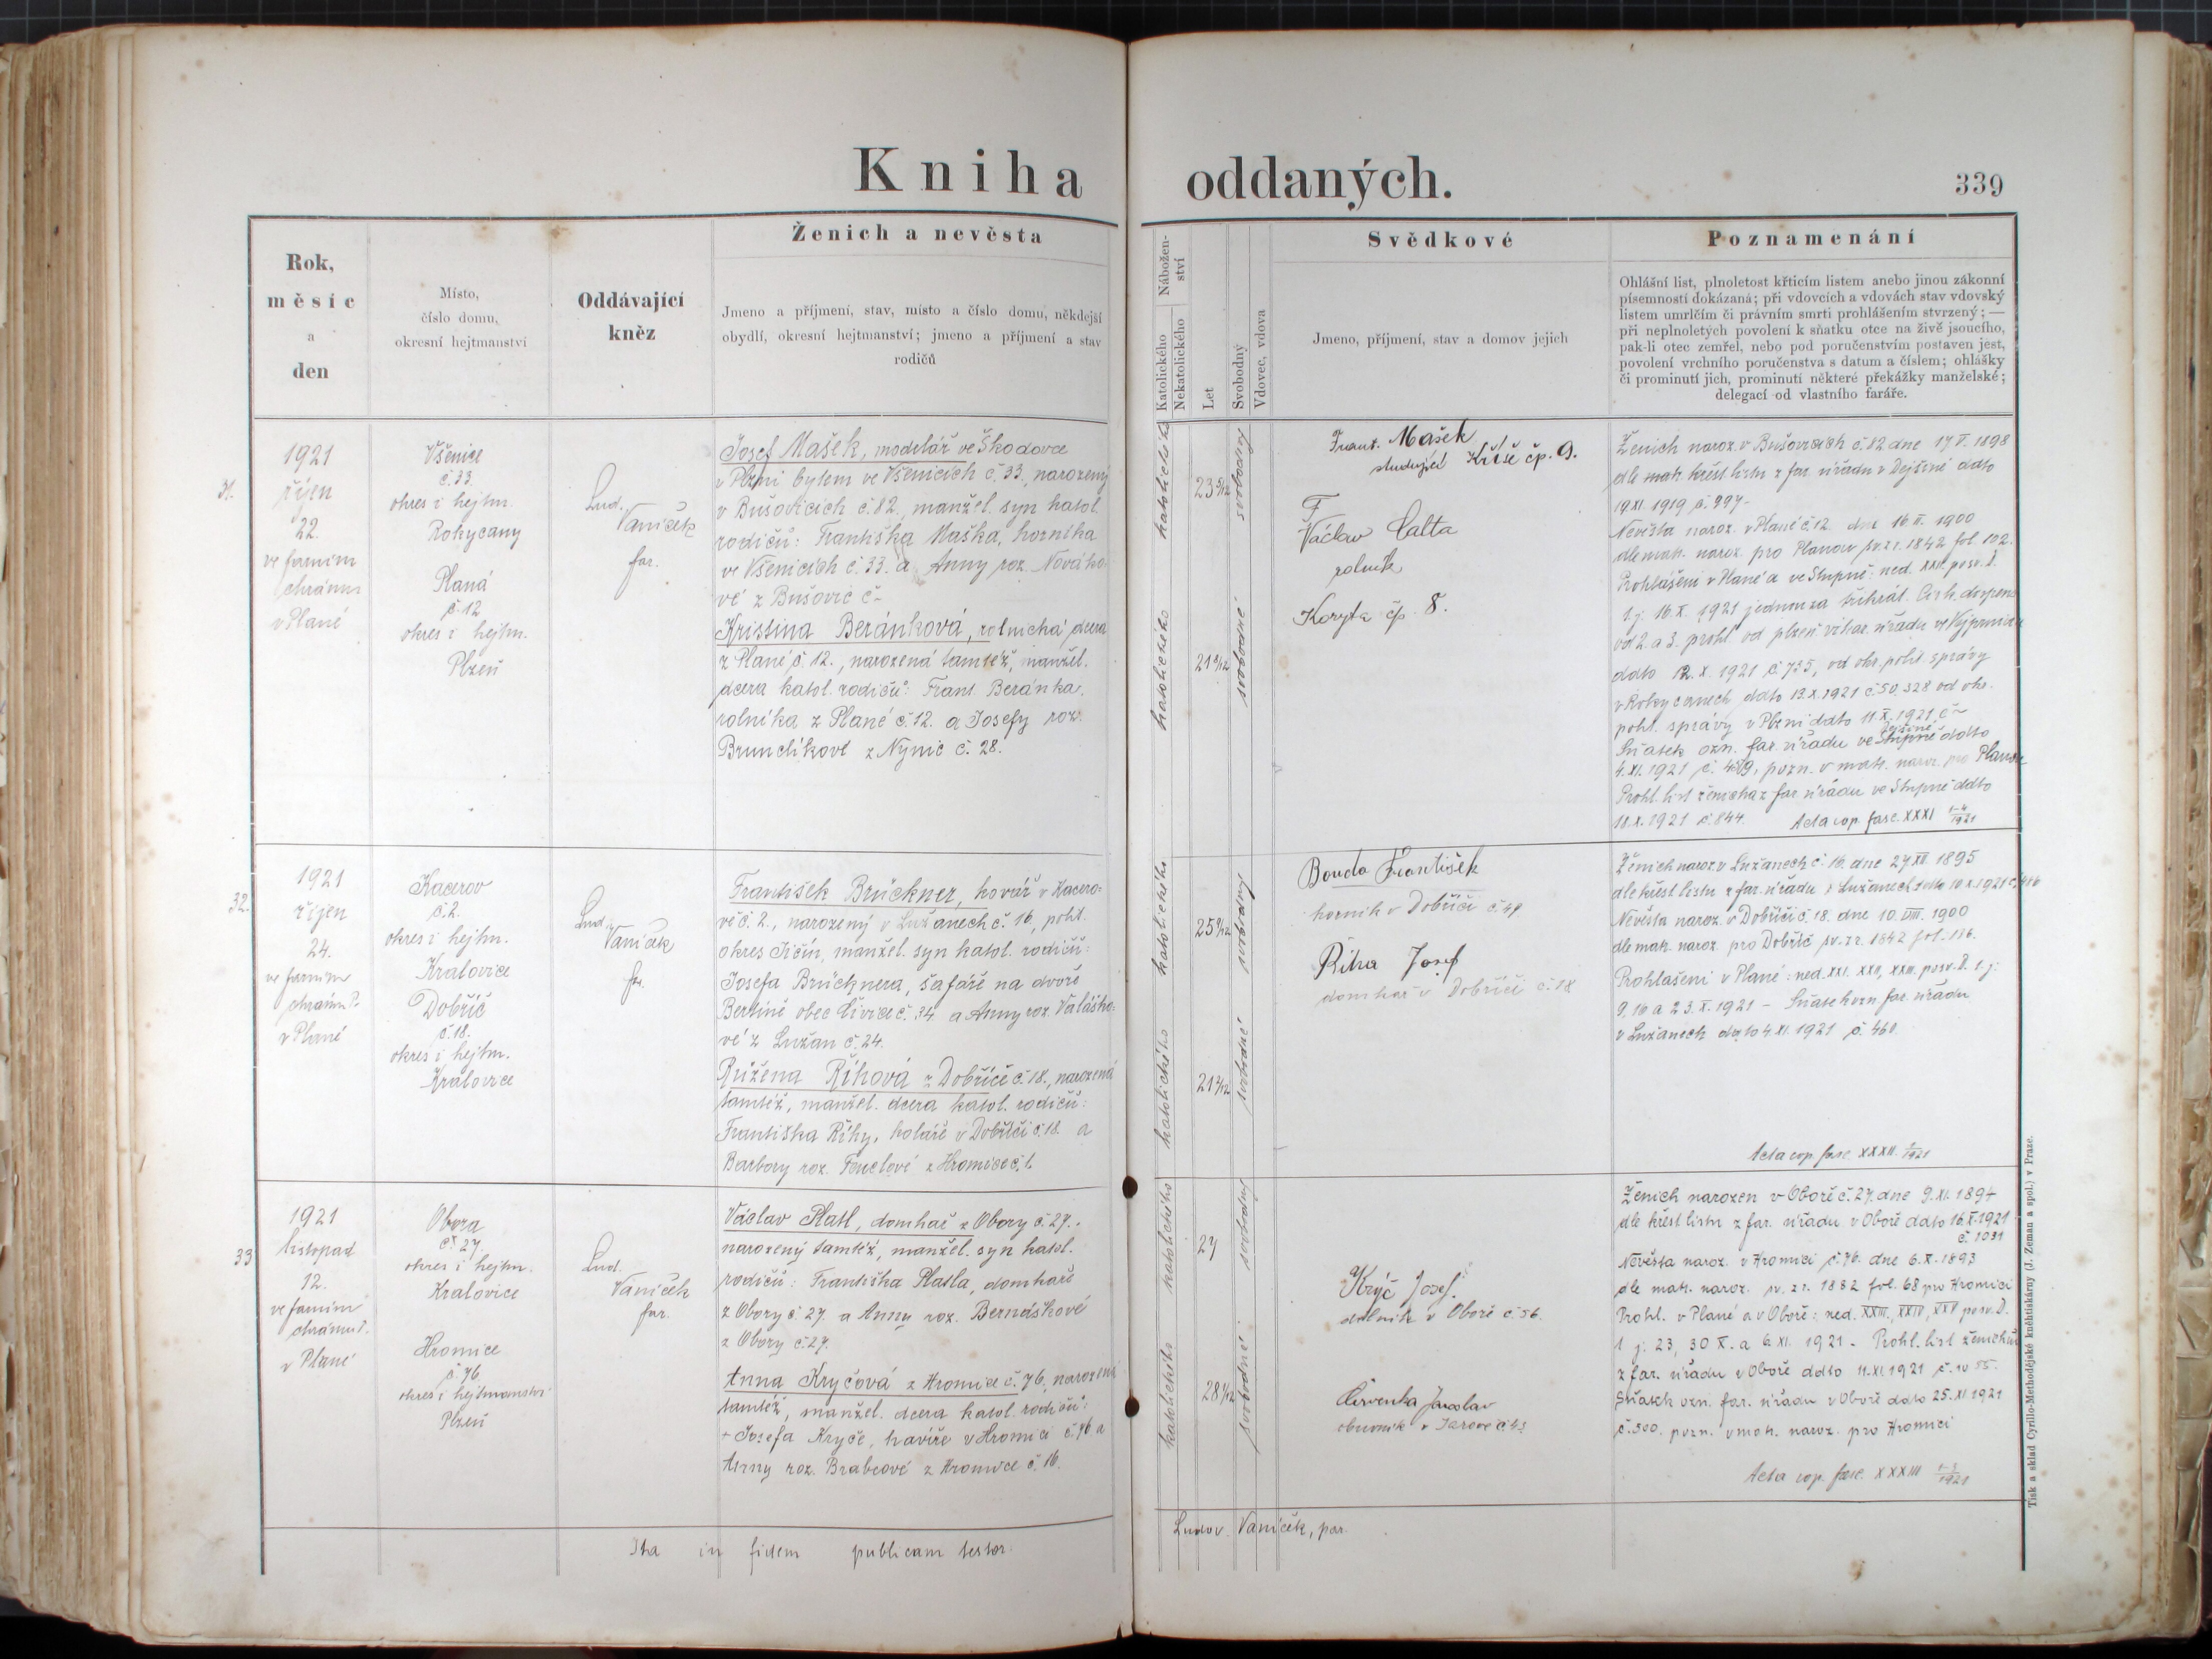 Kniha oddaných.
339
Rok,
měsíc
a
den
Místo,
číslo domu,
okresní hejtmanství
Oddávající
kněz
Ženich a nevěsta
Jmeno a příjmení, stav, místo a číslo domu, někdejší
obydlí, okresní hejtmanství; jmeno a příjmení a stav
rodičů
Nábožen-
ství
Katolického
Nekatolického
Let
Svobodný
Vdovec, vdova
Svědkové
Jmeno, příjmení, stav a domov jejich
Poznamenání
Ohlášní list, plnoletost křticím listem anebo jinou zákonní
písemností dokázaná; při vdovcích a vdovách stav vdovský
listem umrlčím či právním smrti prohlášením stvrzený; —
při neplnoletých povolení k sňatku otce na živě jsoucího,
pak-li otec zemřel, nebo pod poručenstvím postaven jest,
povolení vrchního poručenstva s datum a číslem; ohlášky
či prominutí jich, prominutí některé překážky manželské;
delegací od vlastního faráře.
31.
1921
říjen
22.
ve farním
chrámu
v Plané
Všenice
č. 33.
okres i hejtm.
Rokycany
Planá
č. 12
okres i hejtm.
Plzeň
Lud.
Vaníček
far.
Josef Mašek, modelář ve Škodovce
v Plzni bytem ve Všenicích č. 33., narozený
v Bušovicích č. 82., manžel. syn katol.
rodičů: Františka Maška, horníka
ve Všenicích č. 33. a Anny roz. Nováko-
vé z Bušovic č -
Kristina Beránková, rolnická dcera
z Plané č. 12., narozená tamtéž, manžel.
dcera katol. rodičů: Frant. Beránka,
rolníka z Plané č. 12. a Josefy roz.
Brunclíkové z Nynic č. 28.
katolického
23 5/12
svobodný
katolického
21 8/12
svobodná
Frant. Mašek
studující Kříše čp. 9.
Václav Calta
rolník
Koryta čp. 8.
Ženich naroz. v Bušovicích č. 82 dne 17. V. 1898
dle matr. křest. listu z far. úřadu v Dejšině ddto
19. XI. 1919 č. 997 -
Nevěsta naroz. v Plané č. 12. dne 16. II. 1900
dle matr. naroz. pro Planou sv. z r. 1842 fol. 102.
Prohlášeni v Plané a ve Stupně: ned. XXII. posv. D.
t. j. 16. X. 1921 jednou za třikrát.
od 2. a 3. prohl. od plzeň. vikar. úřadu
ddto 12. X. 1921 č. 735, od okr. polit. správy
v Rokycanech ddto 13. X. 1921 č. 50.328 od okr.
polit. správy v Plzni ddto 11. X. 1921 č -
Dejšině
Sňatek ozn. far. úřadu ve Stupně ddto
4. XI. 1921 č. 459, pozn. v matr. naroz. pro Planou
Prohl. list ženicha z far. úřadu ve Stupně ddto
18. X. 1921 č. 844. Acta cop. fasc. XXXI 1-4/1921
32.
1921
říjen
24.
ve farním
chrámu P.
v Plané
Kacerov
č. 2.
okres i hejtm.
Kralovice
Dobříč
č. 18.
okres i hejtm.
Kralovice
Lud.
Vaníček
far.
František Brückner, kovář v Kacero-
vě č. 2., narozený v Lužanech č. 16, polit.
okres Jičín, manžel. syn katol. rodičů:
Josefa Brücknera, šafáře na dvoře
Bertině obec č. 34 a Anny roz. Valáško-
vé z Lužan č. 24.
Růžena Říhová z Dobříče č. 18., narozená
tamtéž, manžel. dcera katol. rodičů:
Františka Říhy, koláře v Dobříči č. 18. a
Barbory roz. Fenclové z Hromice č. 1.
katolického
25 9/12
svobodný
katolického
21 2/12
svobodná
Bouda František
horník v Dobříči č. 49
Říha Josef
domkář v Dobříči č. 18
Ženich naroz. v Lužanech č. 16. dne 27. XII. 1895
dle křest. listu z far. úřadu v Lužanech ddto 10. X. 1921
Nevěsta naroz. v Dobříči č. 18. dne 10. VIII. 1900
dle matr. naroz. pro Dobříč sv. z r. 1842 fol. 186.
Prohlašeni v Plané: ned. XXI. XXII, XXIII. posv. D. t. j:
9, 16 a 23. X. 1921 - Sňatek ozn. far. úřadu
v Lužanech ddto 4. XI. 1921 č. 460.
Acta cop. fasc. XXXII.
33
1921
listopad
12.
ve farním
chrámu P.
v Plané
Obora
č. 27
okres i hejtm.
Kralovice
Hromice
č. 76.
okres i hejtmanství
Plzeň
Lud.
Vaníček
far.
Václav Platl, domkař z Obory č. 27.
narozený tamtéž, manžel. syn katol.
rodičů: Františka Platla, domkaře
z Obory č. 27. a Anny roz. Bernáškové
z Obory č. 27.
Anna Kryčová z Hromice č. 76., narozená
tamtéž, manžel. dcera katol. rodičů:
+ Josefa Kryče, havíře v Hromici č. 76 a
Anny roz. Brabcové z Hromice č. 16.
katolického
27
svobodný
katolického
28 1/12
svobodná
Kryč Josef
dělník v Oboře č. 56.
Červenka Jaroslav
obuvník v Žarové č. 43
Ženich narozen v Oboře č. 27. dne 9. XI. 1894
dle křest. listu z far. úřadu v Oboře ddto 16. X. 1921
č. 1031
Nevěsta naroz. v Hromici č. 76. dne 6. X. 1893
dle matr. naroz. sv. z r. 1882 fol. 68 pro Hromici
Prohl. v Plané a v Oboře: ned. XXIII, XXIV, XXV posv. D.
t. j: 23, 30 X. a 6. XI. 1921 - Prohl. list ženichův
z far. úřadu v Oboře ddto 11. XI. 1921
Sňatek ozn. far. úřadu v Oboře ddto 25. XI 1921
č. 500. pozn. v matr. naroz. pro Hromici
Acta cop. fasc. XXXIII 1-3/1921
Ita in fidem publicam testor. Ludov. Vaníček, par.
Tisk a sklad Cyrillo-Methodějské knihtiskárny (J. Zeman a spol.) v Praze.